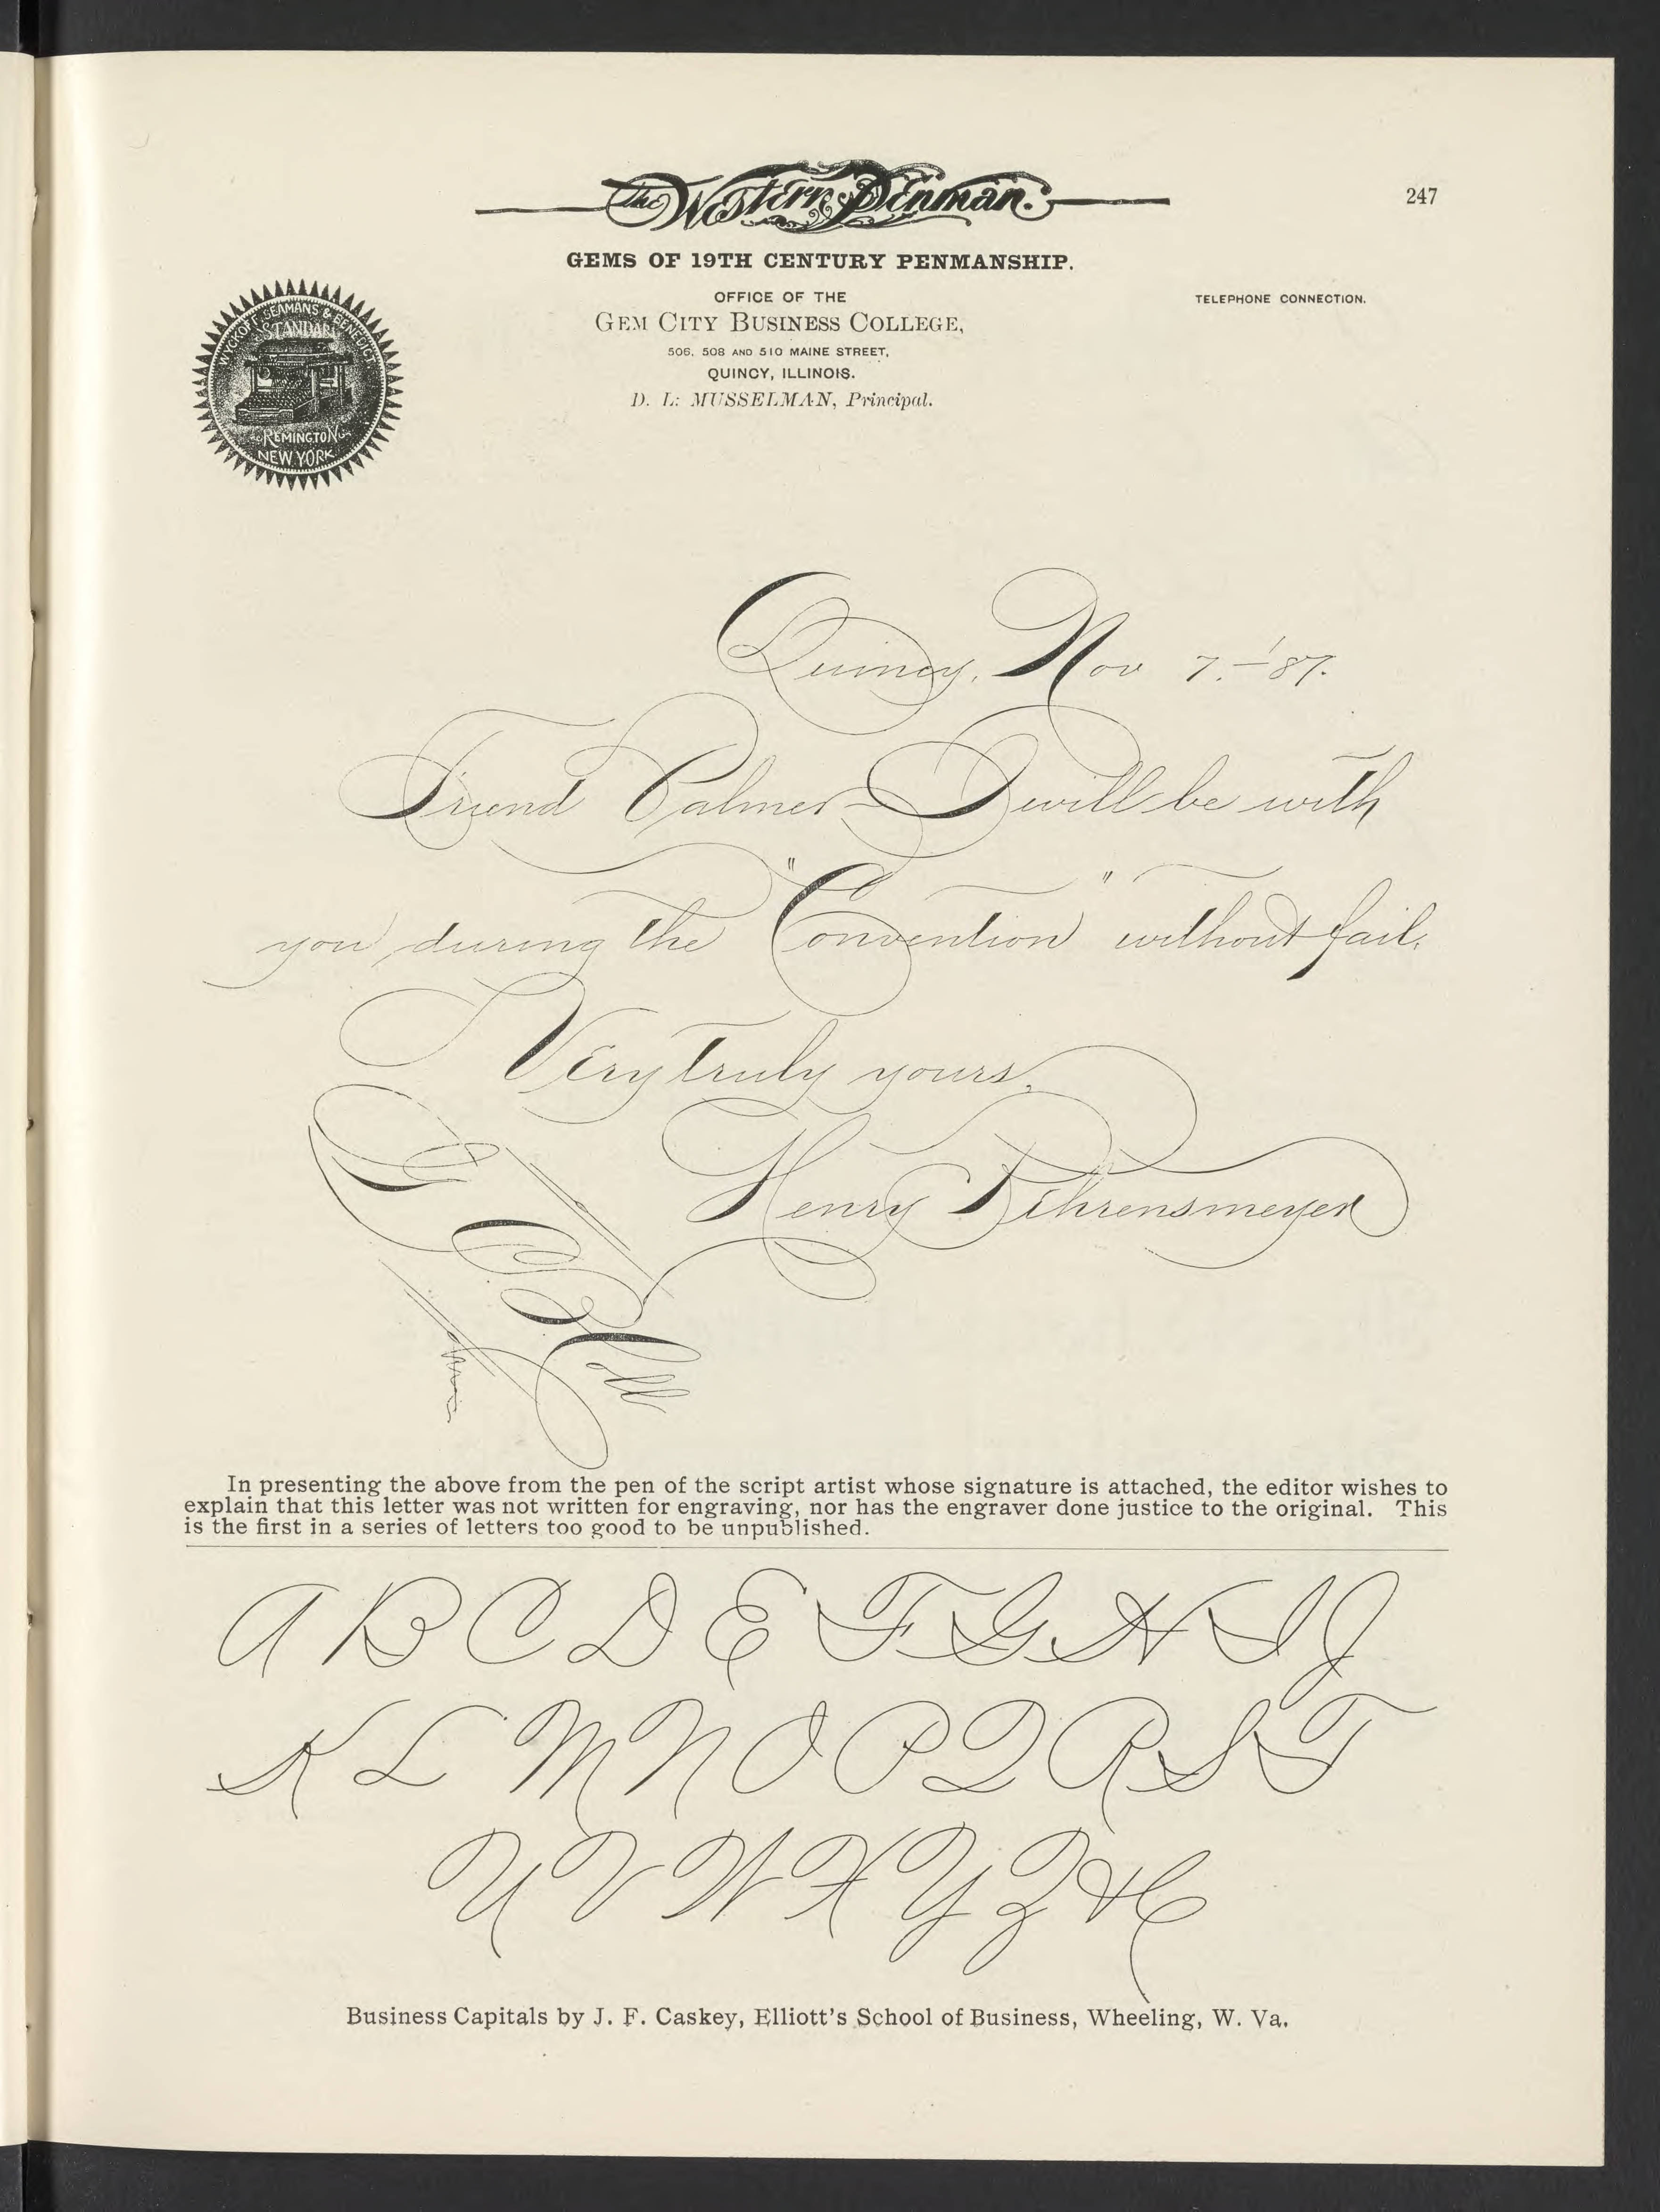 The Western Penman.
247
GEMS OF 19TH CENTURY PENMANSHIP.
WYCKOFF, SEAMANS & BENEDICT
STANDARD
REMINGTON
NEW YORK
OFFICE OF THE
GEM CITY BUSINESS COLLEGE,
506, 508 AND 510 MAINE STREET,
QUINCY, ILLINOIS.
D. L. MUSSELMAN, Principal.
TELEPHONE CONNECTION.
Quincy, Nov 7.-'87.
Friend Palmer - I will be with
you during the "Convention" without fail.
Very truly yours,
Henry Behrensmeyer
In presenting the above from the pen of the script artist whose signature is attached, the editor wishes to
explain that this letter was not written for engraving, nor has the engraver done justice to the original. This
is the first in a series of letters too good to be unpublished.
A B C D E F G H I J
K L M N O P Q R S T
U V W X Y Z &
Business Capitals by J. F. Caskey, Elliott's School of Business, Wheeling, W. Va.